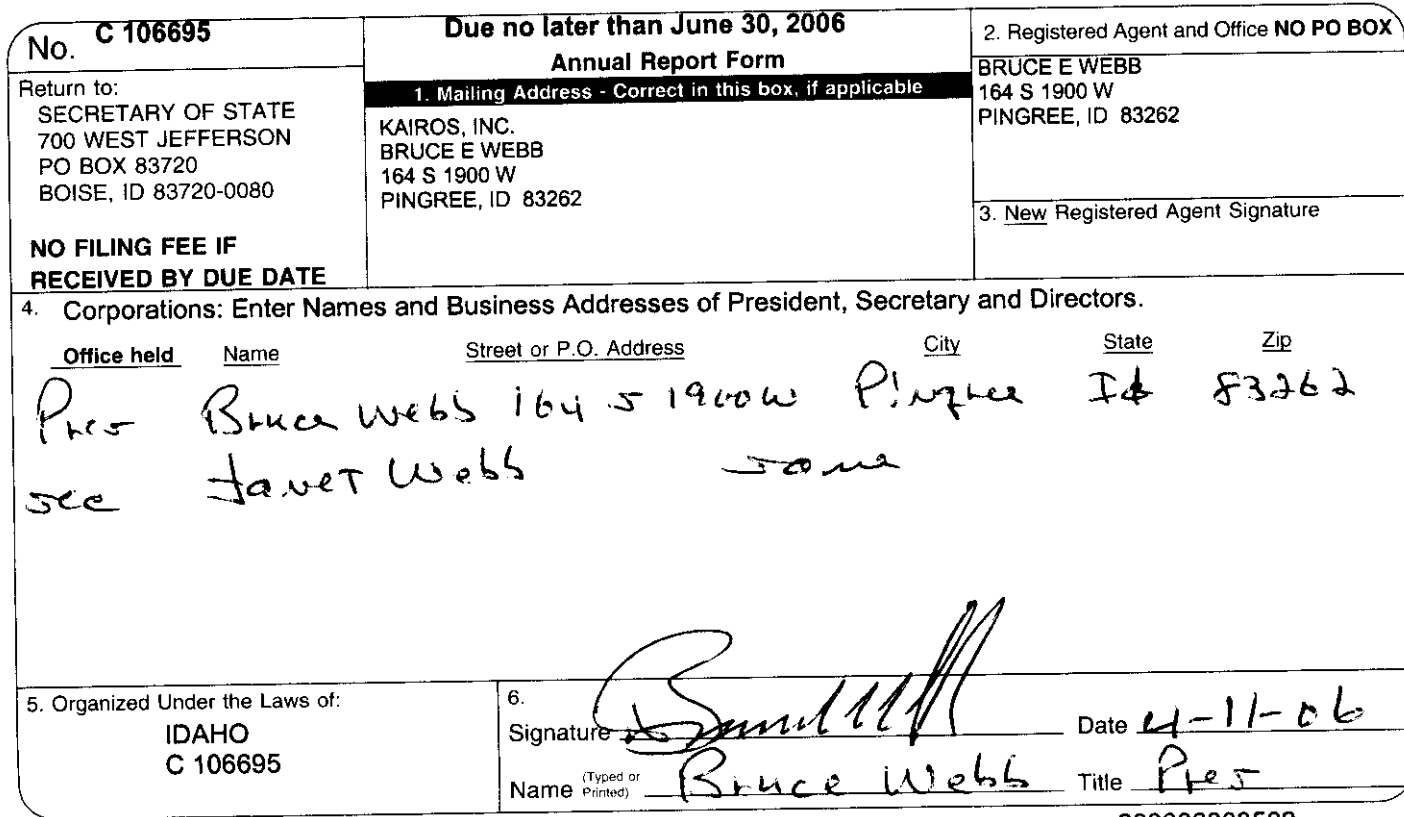 No. C 106695
Return to:
SECRETARY OF STATE
700 WEST JEFFERSON
PO BOX 83720
BOISE, ID 83720-0080
NO FILING FEE IF
RECEIVED BY DUE DATE
Due no later than June 30, 2006
Annual Report Form
1. Mailing Address - Correct in this box, if applicable
KAIROS, INC.
BRUCE E WEBB
164 S 1900 W
PINGREE, ID 83262
2. Registered Agent and Office NO PO BOX
BRUCE E WEBB
164 S 1900 W
PINGREE, ID 83262
3. New Registered Agent Signature
4. Corporations: Enter Names and Business Addresses of President, Secretary and Directors.
Office held Name Street or P.O. Address City State Zip
Pres Bruce Webb 164 S 1900 W Pingree Id 83262
sec Janet Webb same
5. Organized Under the Laws of:
IDAHO
C 106695
6.
Signature Date 4-11-06
Name (Typed or Printed) Bruce Webb Title Pres